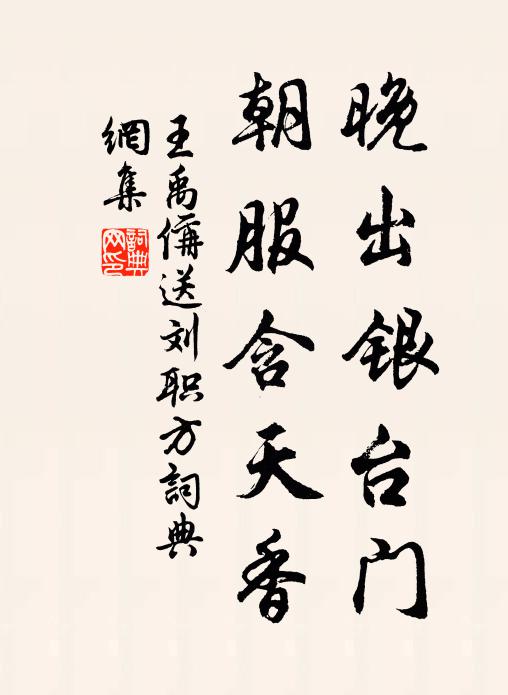 晚出银台门
朝服含天香
王禹偁送刘职方詞典
網集
詞典
网印